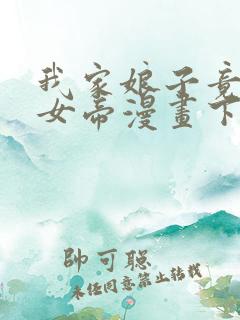 我家娘子竟
女帝漫畫下
帥可聡
未经同意禁止转载